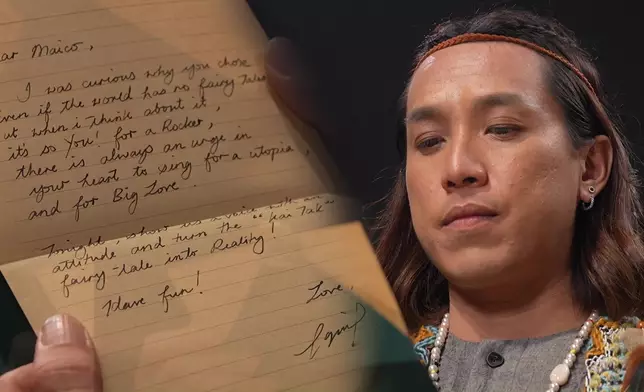 ar Maico,
I was curious why you chose
Even if the world has no fairy Tales
ut when i think about it,
it's so You! for a Rocker,
there is always an urge in
your heart to sing for a utopia,
and for Big Love.
Tonight, show us a voice with an
attitude and turn the "Fair Tale"
fairy-tale into Reality!
Have fun!
Love,